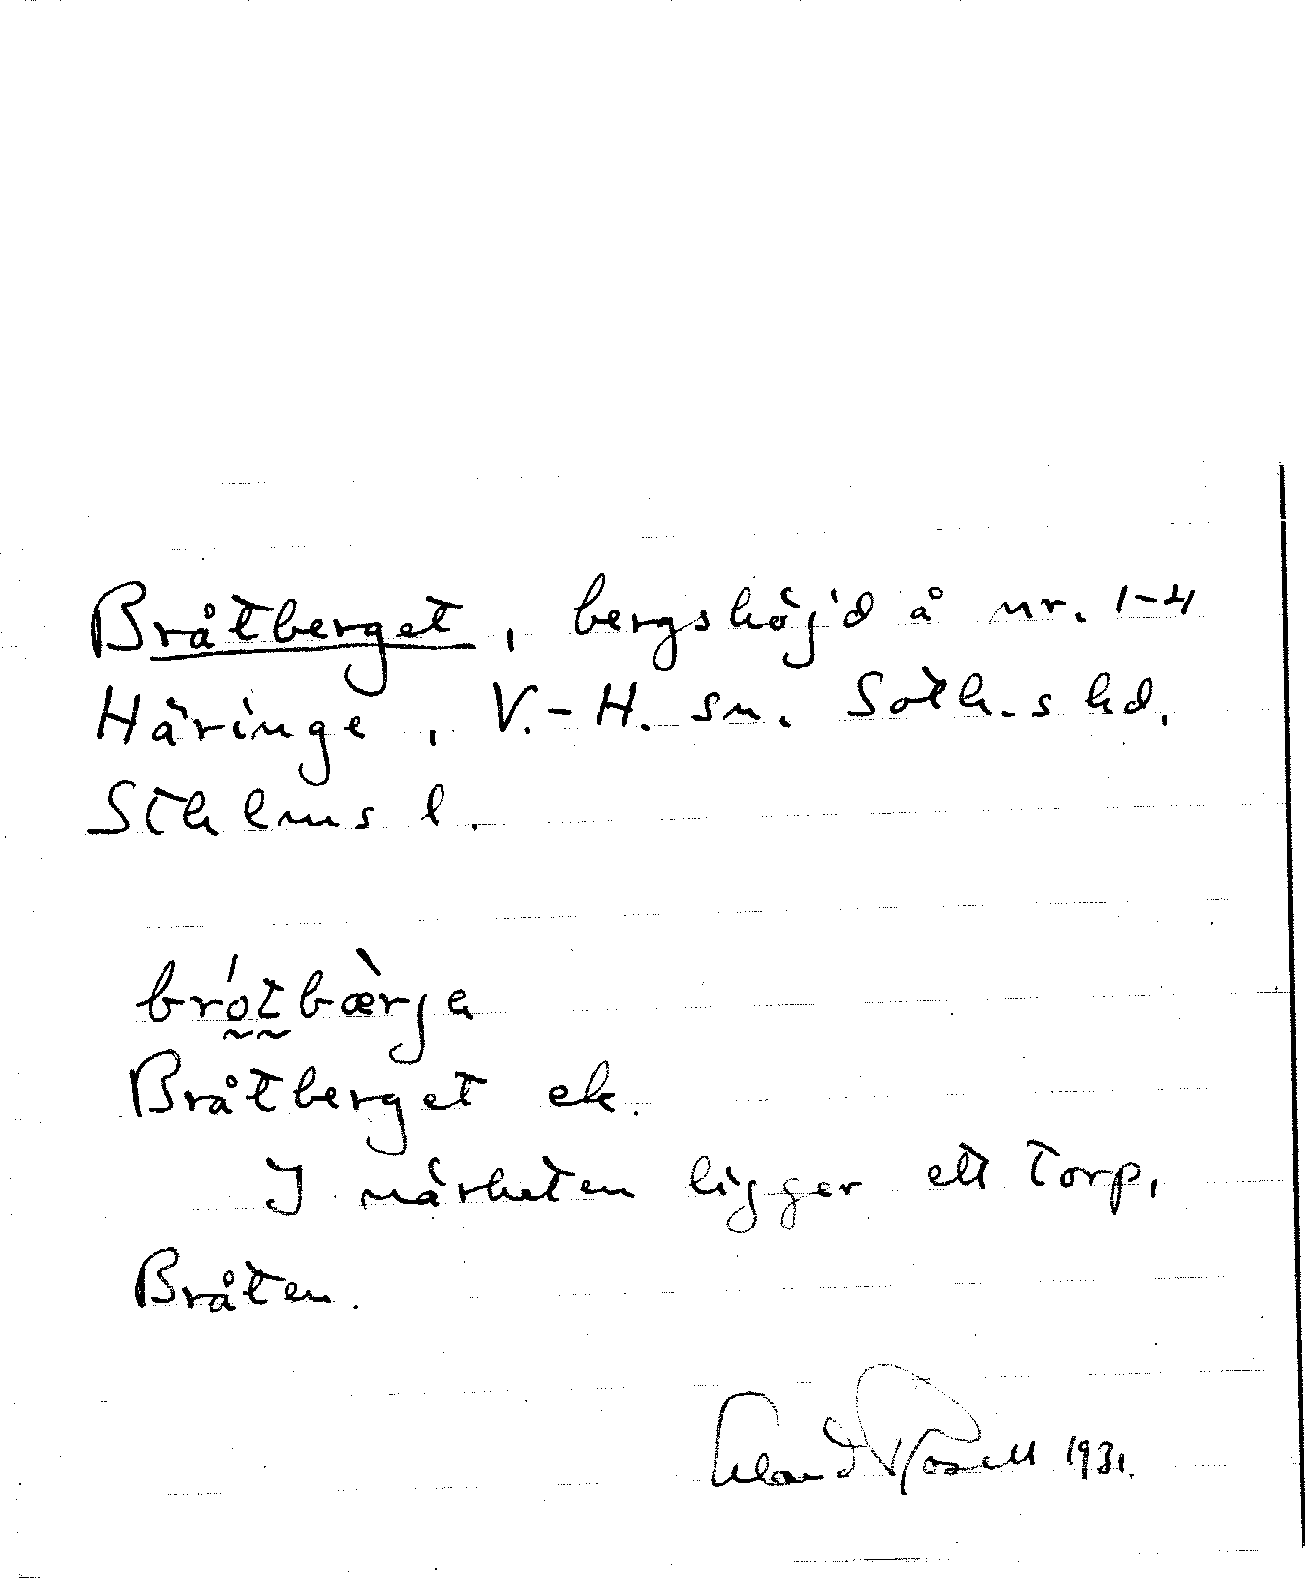 Bråtberget, bergshöjd å nr. 1-4
Häringe, V.-H. sn. Soth.s hd.
Sthlms l.
brótbæ̀rja
Bråtberget ek.
I närheten ligger ett torp,
Bråten.
Erland Rosell 1931.